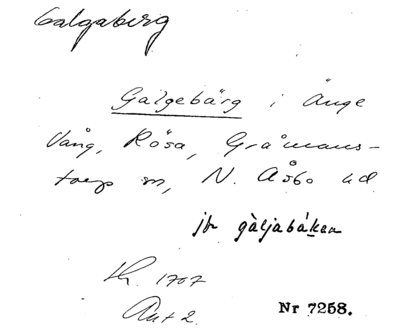 Galgaberg
Galgebärg i Änge
Vång, Rösa, Gråmans-
torp sn, N. Åsbo hd
jfr gàljabákan
Lh. 1707
Ant 2.
Nr 7258.